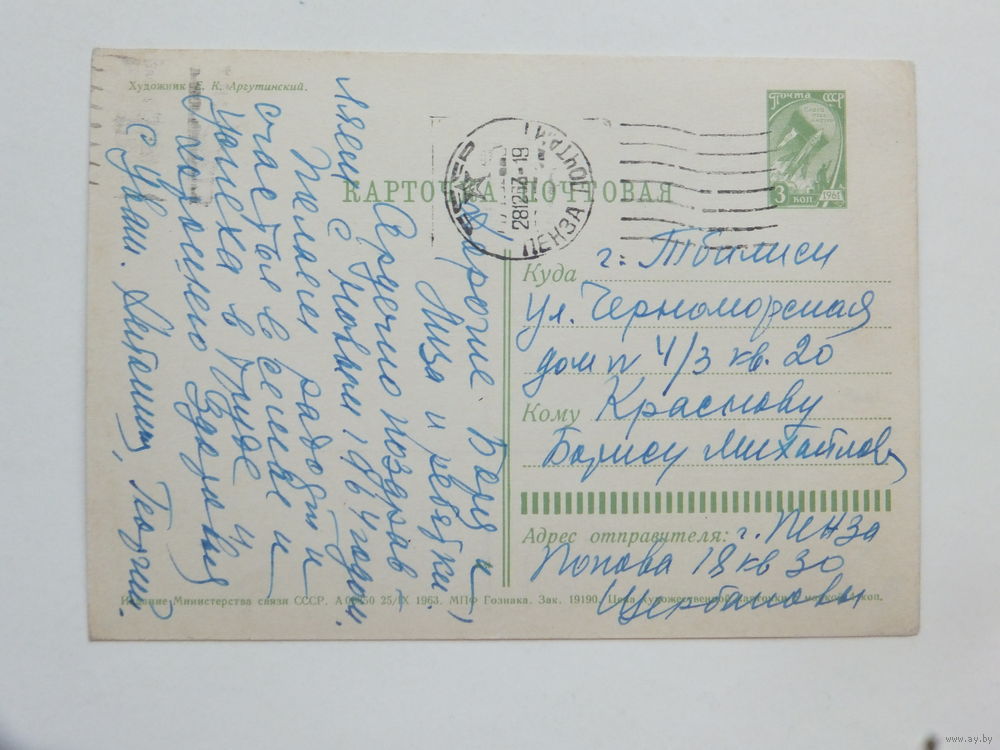 Художник Е. К. Аргутинский.
ПОЧТА СССР
3 КОП. 1961
КАРТОЧКА ПОЧТОВАЯ
СССР
ПЕНЗА ПОЧТАМТ
281263-19
Дорогие Боря и
Лиза и ребятки!
Сердечно поздрав-
ляем с Новым 1964 годом.
Желаем радости и
счастья в семье и
успеха в труде и
хорошего здоровия
С Уваж.
Куда г. Тбилиси
ул. Черноморская
дом п 4/3 кв. 20
Кому Краснову
Борису Михайлов
Адрес отправителя: г. Пенза
Попова 18 кв 30
Щербаковы
Издание Министерства связи СССР. А 25/IX 1963. МПФ Гознака. Зак. 19190. Цена художественной карточки с маркой 4 коп.
www.ay.by